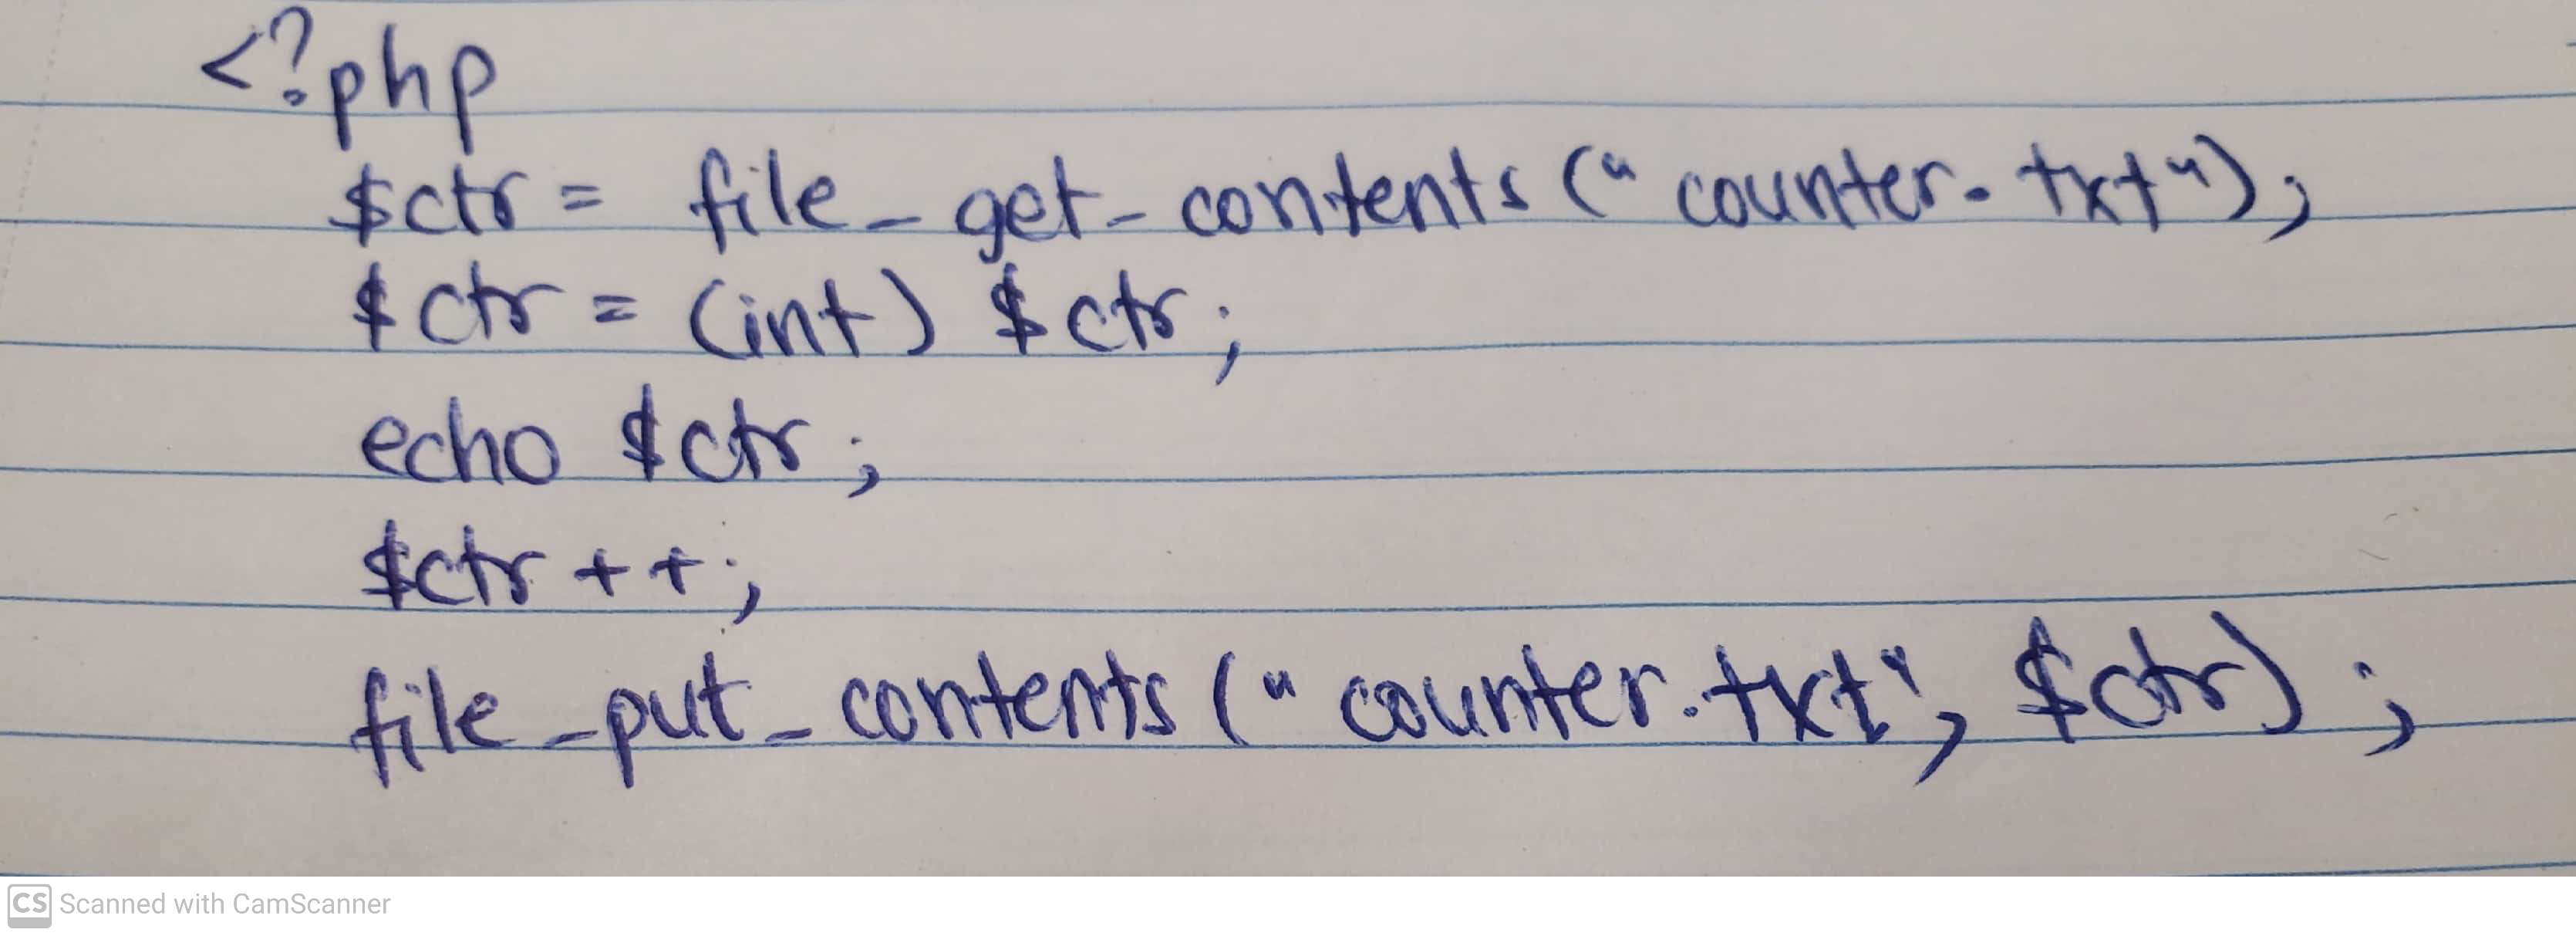 <?php
$ctr = file_get_contents("counter.txt");
$ctr = (int) $ctr;
echo $ctr;
$ctr++;
file_put_contents("counter.txt", $ctr);
CS Scanned with CamScanner